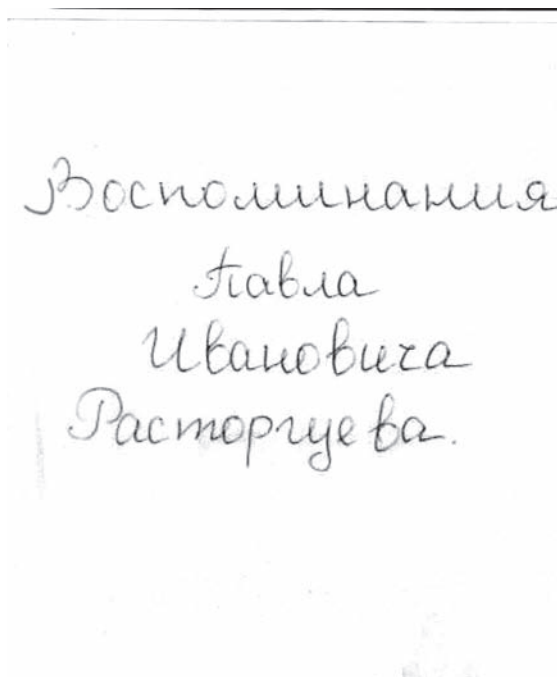 Воспоминания
Павла
Ивановича
Расторгуева.